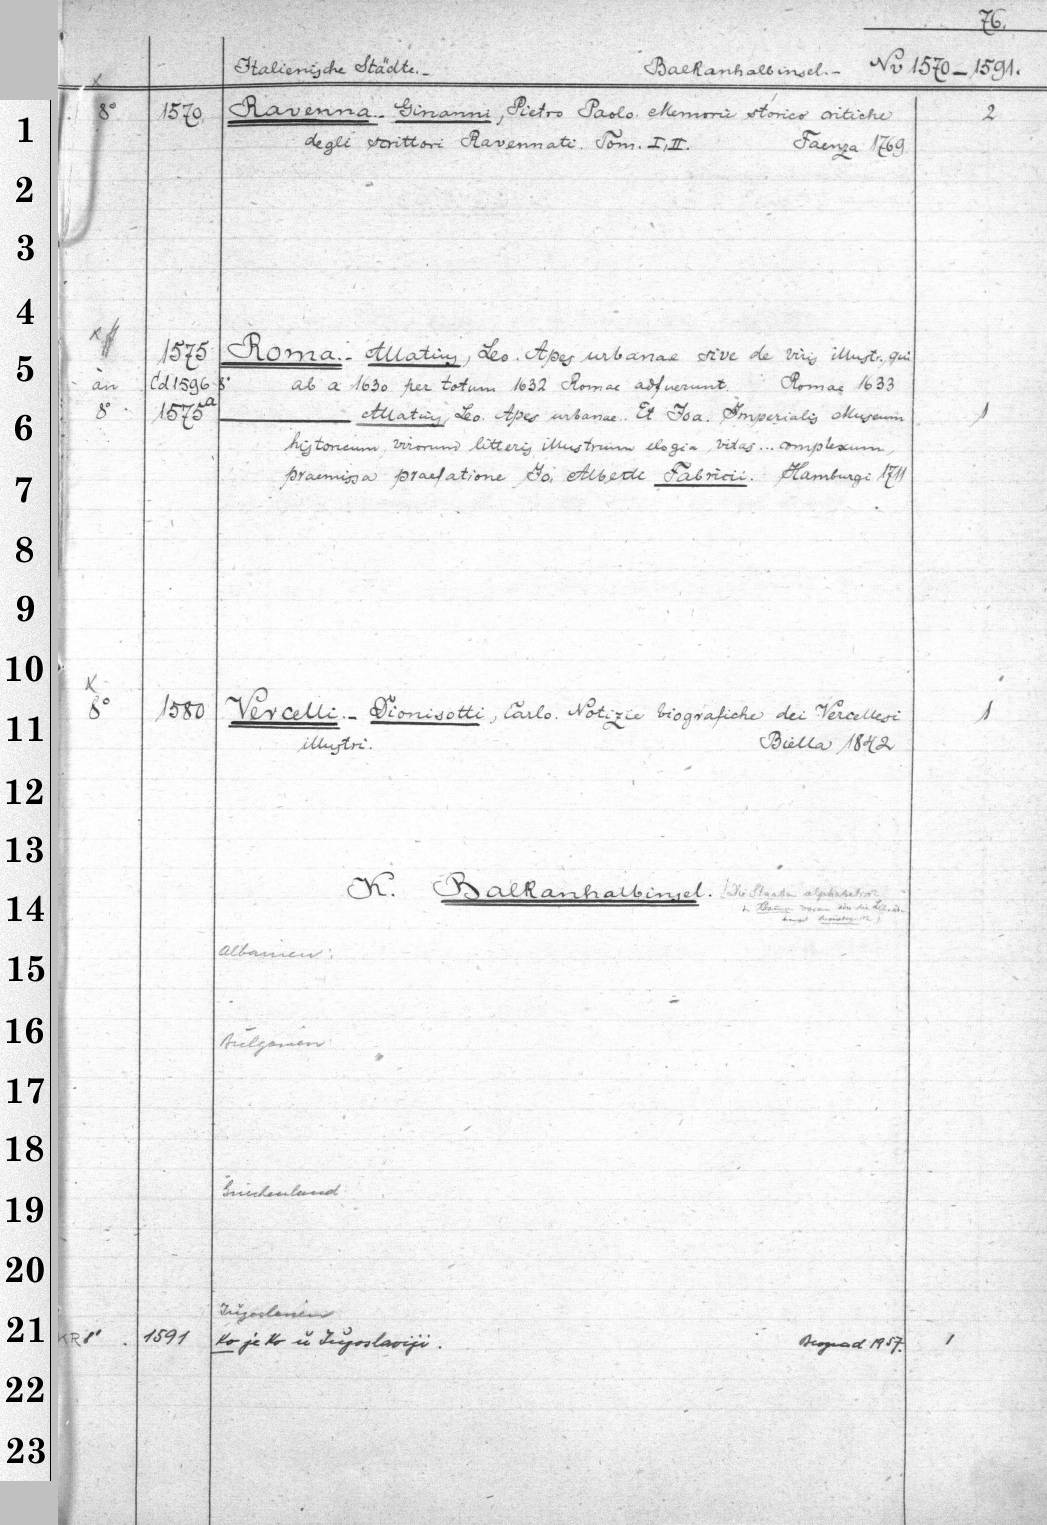 76.
Italienische Städte.- Balkanhalbinsel.- Nv 1570-1591.
8° 1570 Ravenna.- Ginanni, Pietro Paolo. Memorie storico critiche 2
1
degli scrittori Ravennati. Tom. I, II. Faenza 1769
2
3
4
1575 Roma.- Allatius, Leo. Apes urbanae sive de viris illustr., qui
5
an Cd 1596 8° ab a 1630 per totum 1632 Romae adfuerunt. Romae 1633
8° 1575a Allatius, Leo. Apes urbanae.. Et Joa. Imperialis Museum 1
6
historicum, virorum litteris illustrium elogia, vidas... complexum,
praemissa praefatione Jo. Alberti Fabricii. Hamburgi 1711
7
8
9
10
x
8° 1580 Vercelli.- Dionisotti, Carlo. Notizie biografiche dei Vercellesi 1
11
illustri. Biella 1842
12
13
K. Balkanhalbinsel. (Die Staaten alphabetisch
14
Albanien:
15
16
Bulgarien
17
18
Griechenland
19
20
Jugoslavien
21
KR 8° 1591 Ko je Ko u Jugoslaviji. Beograd 1957. 1
22
23